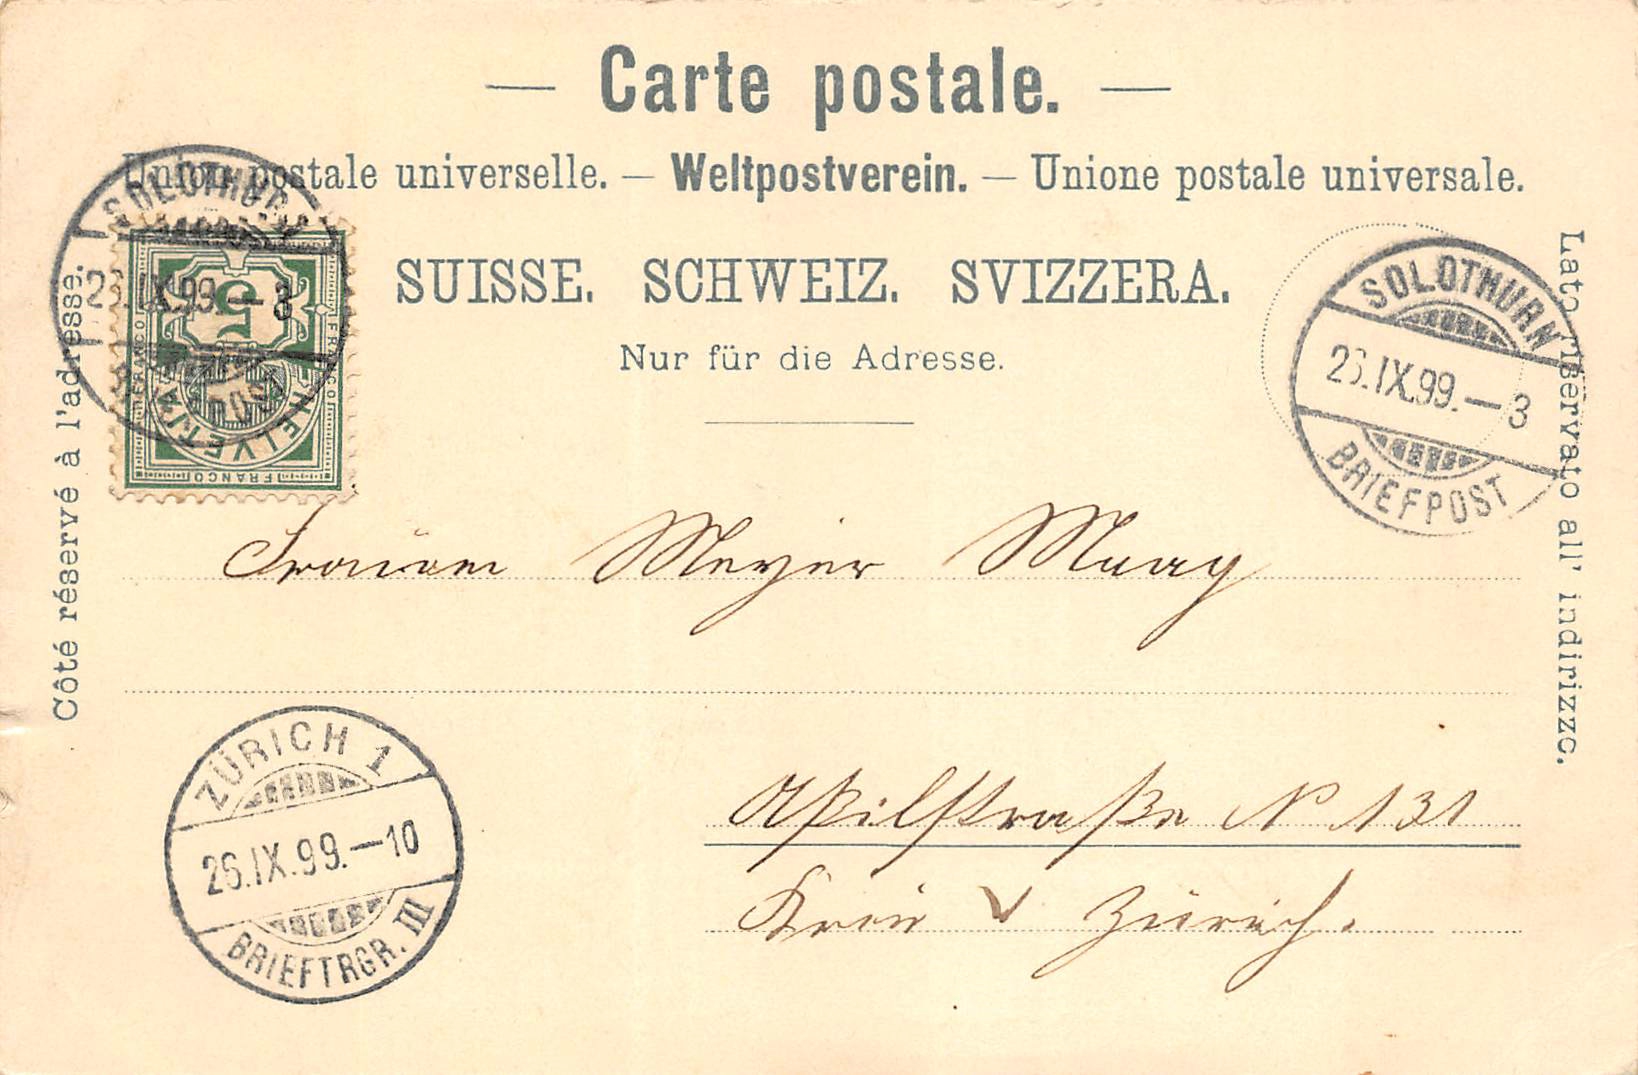 — Carte postale. —
Union postale universelle. — Weltpostverein. — Unione postale universale.
SUISSE. SCHWEIZ. SVIZZERA.
Nur für die Adresse.
Côté réservé à l'adresse.
Lato riservato all' indirizzo.
SOLOTHURN
IX.99.—3
5
FRANCO
FRANCO
FRANCO
HELVETIA
SOLOTHURN
IX.99.—3
BRIEFPOST
Meyer Maag
N 131
Zürich.
ZÜRICH 1
26.IX.99.—10
BRIEFTRGR. III